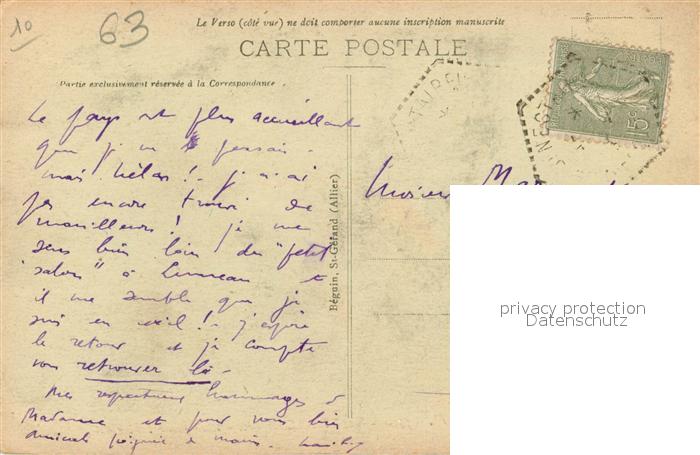 10
63
Le Verso (côté vue) ne doit comporter aucune inscription manuscrite
CARTE POSTALE
Partie exclusivement réservée à la Correspondance
Le pays est plus accueillant
que je ne pensais.
mais hélas! je n'ai
pas encore trouvé de
je me
sens bien loin du "petit
salon" à et
il me semble que je
suis en exil! j'espère
le retour et je compte
vous retrouver là.
Mes respectueux hommages à
Madame et pour vous bien
amicale poignée de mains.
Béguin, St-Gérand (Allier)
Monsieur
15
privacy protection
Datenschutz